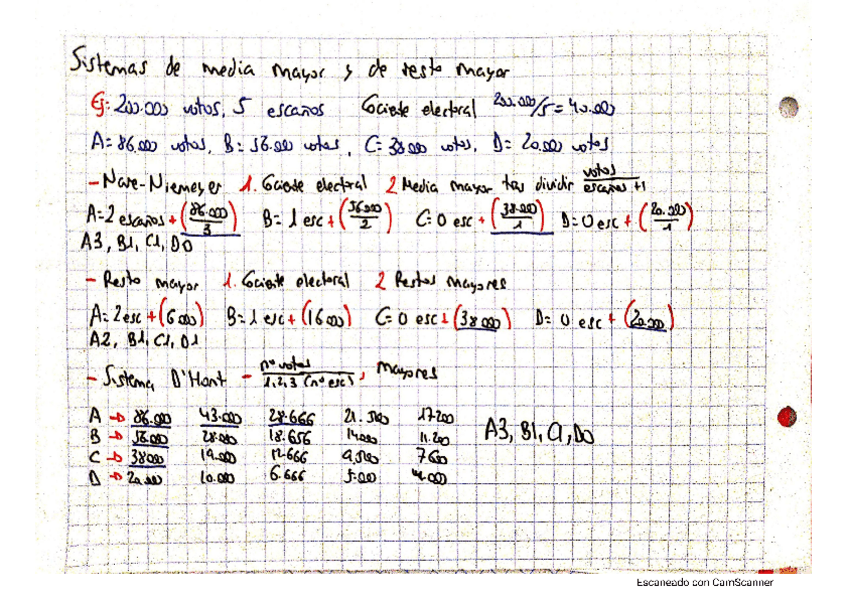 Sistemas de media mayor y de resto mayor
Ej: 200.000 votos, 5 escaños Cociente electoral 200.000/5 = 40.000
A= 86.000 votos, B= 56.000 votos, C= 38000 votos, D= 20.000 votos
- Nare-Niemeyer 1. Cociente electoral 2 Media mayor tras dividir votos/escaños +1
A= 2 escaños + (86.000/3) B= 1 esc + (56000/2) C= 0 esc + (38.000/1) D= 0 esc + (20.000/1)
A3, B1, C1, D0
- Resto mayor 1. Cociente electoral 2 Restos mayores
A= 2 esc + (6000) B= 1 esc + (16000) C= 0 esc + (38000) D= 0 esc + (20.000)
A2, B1, C1, D1
- Sistema D'Hont - nº votos/1,2,3 (nº esc), mayores
A → 86.000 43.000 28.666 21.500 17200
B → 56.000 28.000 18.656 14000 11.200
C → 38000 19.000 12.666 9.500 7600
D → 20.000 10.000 6.666 5.000 4.000
A3, B1, C1, D0
Escaneado con CamScanner